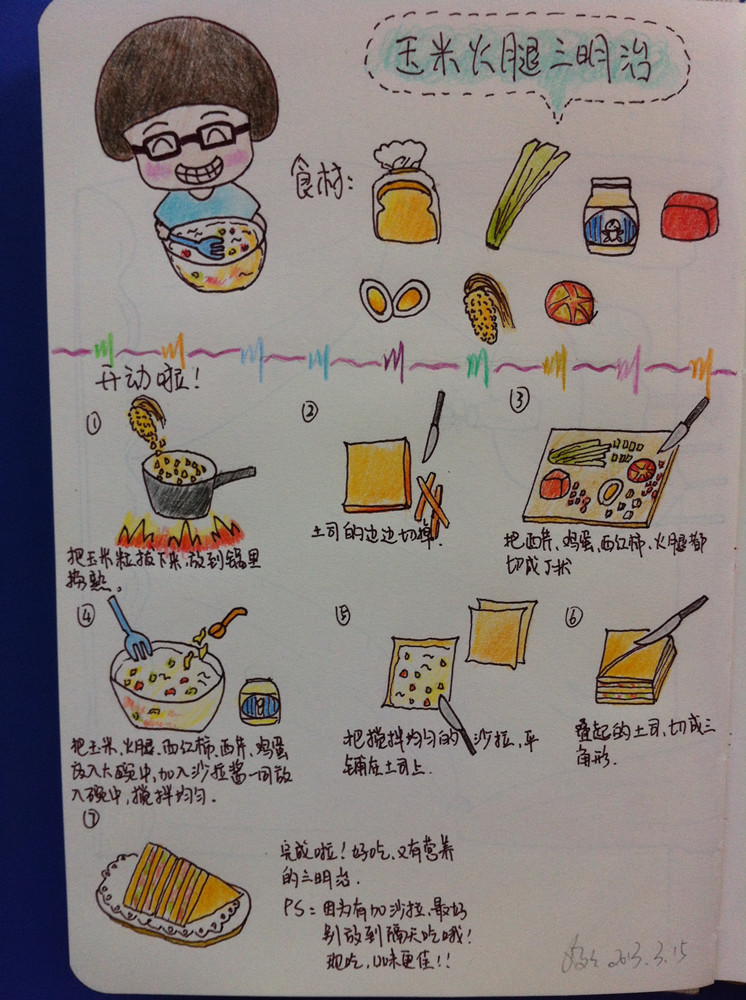 玉米火腿三明治
食材:
开动啦!
①
把玉米粒拔下来,放到锅里
捞熟。
②
土司的边边切掉.
③
把西芹、鸡蛋、西红柿、火腿都
切成丁状
④
把玉米、火腿、西红柿、西芹、鸡蛋
放入大碗中,加入沙拉酱一同放
入碗中,搅拌均匀.
⑤
把搅拌均匀的沙拉,平
铺在土司上.
⑥
叠起的土司,切成三
角形.
⑦
完成啦!好吃、又有营养
的三明治.
PS:因为有加沙拉、最好
别放到隔天吃哦!
现吃,口味更佳!!
2013.3.15